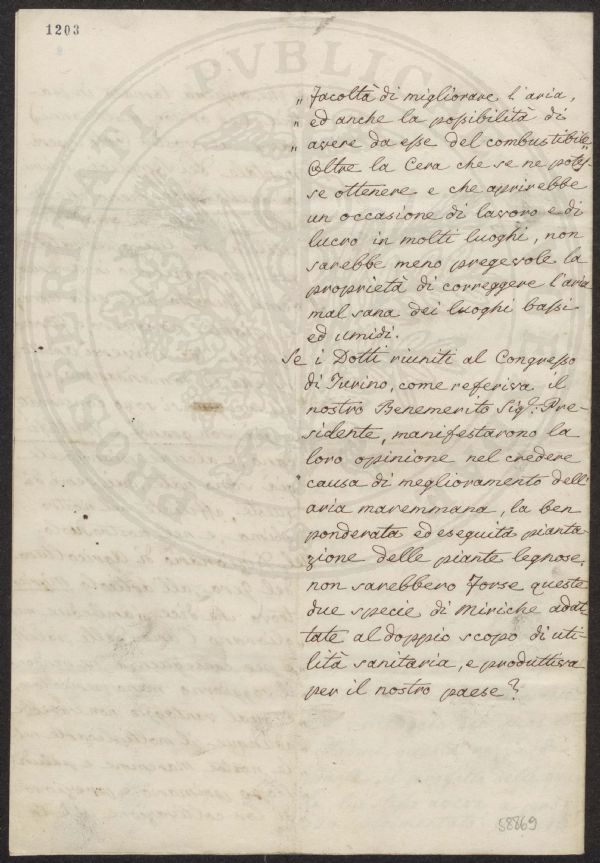 1203
PVBLIC
PROSPERITATI
„ Facoltà di migliorare l'aria,
„ ed anche la possibilità di
„ avere da esse del combustibile„
Oltre la Cera che se ne potes-
se ottenere e che aprirebbe
un occasione di lavoro e di
lucro in molti luoghi, non
sarebbe meno pregevole la
proprietà di correggere l'aria
mal sana dei luoghi bassi
ed umidi.
Se i Dotti riuniti al Congresso
di Turino, come referiva il
nostro Benemerito Sig.r Pre-
sidente, manifestarono la
loro opinione nel credere
causa di meglioramento dell'
aria maremmana, la ben
ponderata ed eseguita pianta-
zione delle piante legnose,
non sarebbero Forse queste
due specie di Miriche adat-
tate al doppio scopo di uti-
lità sanitaria, e produttiva
per il nostro paese?
58869